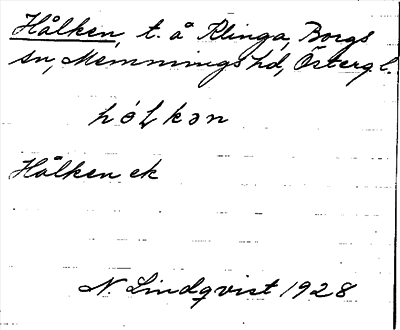 Hålken, t. å Klinga, Borgs
sn, Memmings hd, Östergl.
hó̢lkən
Hålken ek
N. Lindqvist 1928